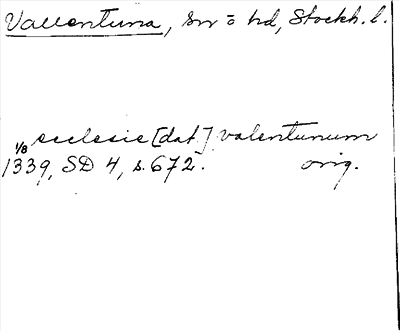 Vallentuna, sn o hd, Stockh. l.
ecclesie [dat.] valentunum
1/8 1339, SD 4, s. 672. orig.